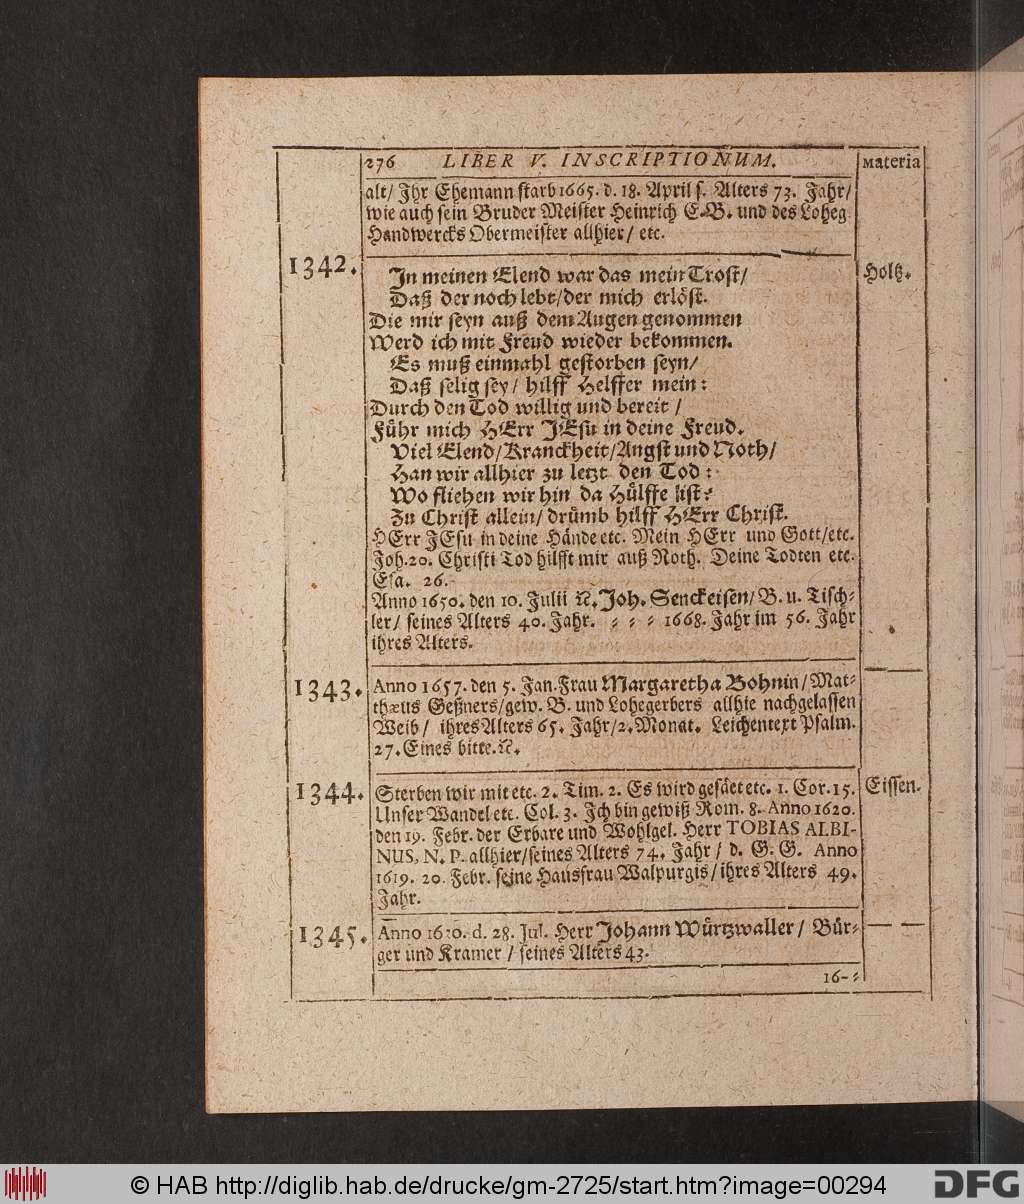 276 LIBER V. INSCRIPTIONUM. Materia
alt/ Ihr Ehemann starb 1665. d. 18. April s. Alters 73. Jahr/
wie auch sein Bruder Meister Heinrich E.B. und des Loheg
Handwercks Obermeister allhier/ etc.
1342. In meinen Elend war das mein Trost/ Holtz.
Daß der noch lebt/der mich erlöst.
Die mir seyn auß dem Augen genommen
Werd ich mit Freud wieder bekommen.
Es muß einmahl gestorben seyn/
Daß selig sey/ hilff Helffer mein:
Durch den Tod willig und bereit/
Führ mich HErr JEsu in deine Freud.
Viel Elend/Kranckheit/Angst und Noth/
Han wir allhier zu letzt den Tod:
Wo fliehen wir hin da Hülffe ist?
Zu Christ allein/ drümb hilff HErr Christ.
HErr JEsu in deine Hände etc. Mein HErr und Gott/etc.
Joh. 20. Christi Tod hilfft mir auß Noth. Deine Todten etc.
Esa. 26.
Anno 1650. den 10. Julii ꝛc. Joh. Senckeisen/ B. u. Tisch-
ler/ seines Alters 40. Jahr. - - - 1668. Jahr im 56. Jahr
ihres Alters.
1343. Anno 1657. den 5. Jan. Frau Margaretha Bohnin/ Mat-
thæus Geßners/gew. B. und Lohegerbers allhie nachgelassen
Weib/ ihres Alters 65. Jahr/2. Monat. Leichentext Psalm.
27. Eines bitte. ꝛc.
1344. Sterben wir mit etc. 2. Tim. 2. Es wird gesäet etc. 1. Cor. 15. Eissen.
Unser Wandel etc. Col. 3. Ich bin gewiß Rom. 8. Anno 1620.
den 19. Febr. der Erbare und Wohlgel. Herr TOBIAS ALBI-
NUS, N. P. allhier/seines Alters 74. Jahr/ d. G. G. Anno
1619. 20. Febr. seine Hausfrau Walpurgis/ ihres Alters 49.
Jahr.
1345. Anno d. 28. Jul. Herr Johann Würtzwaller/ Bür- — —
ger und Kramer/ seines Alters 43.
16--
© HAB http://diglib.hab.de/drucke/gm-2725/start.htm?image=00294 DFG